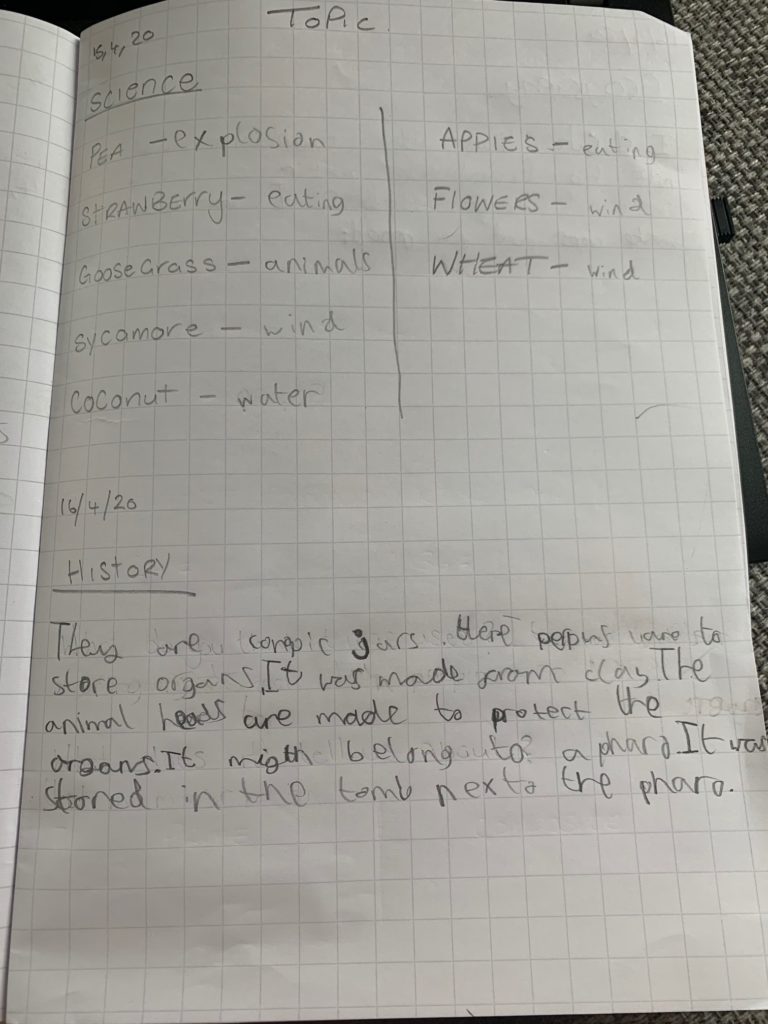 Topic
15,4,20
science
PEA - explosion
STRAWBERRY - eating
GOOSEGRASS - animals
sycamore - wind
coconut - water
APPlES - eating
FlOWERS - wind
WHEAT - wind
16/4/20
HISTORY
They are conopic jars. there perpus was to
store organs. It was made from clay The
animal heads are made to protect the
organs. It migth belong to? a pharo It was
stored in the tomb nexto the pharo.